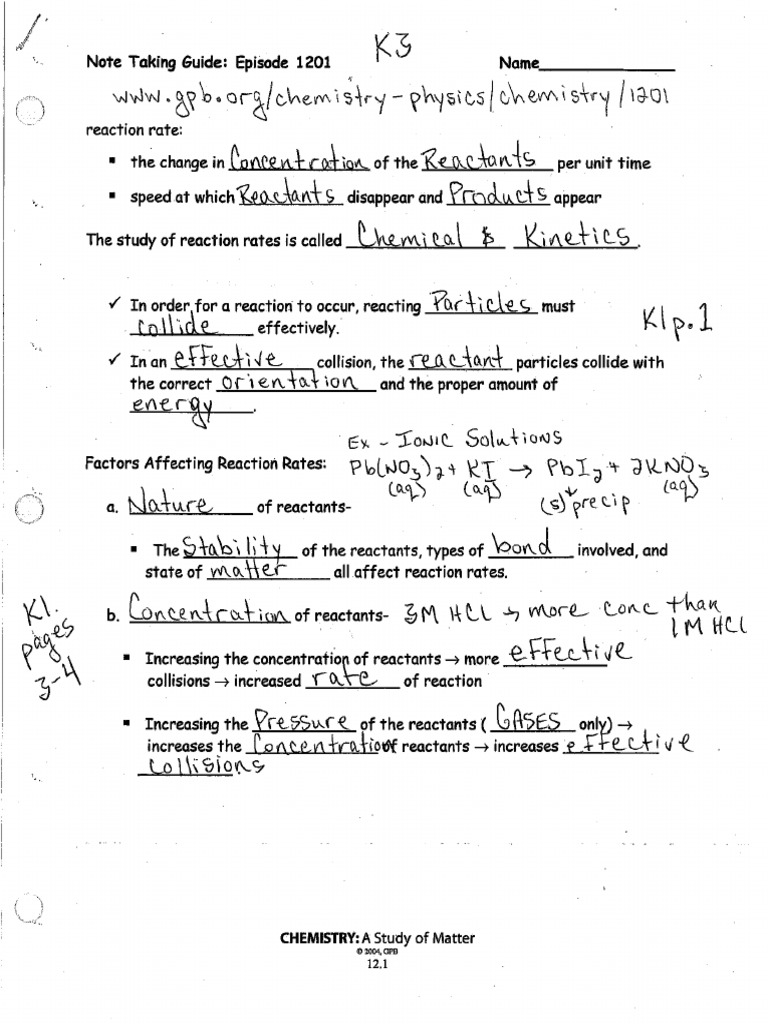 K3
Note Taking Guide: Episode 1201 Name
www.gpb.org/chemistry-physics/chemistry/1201
reaction rate:
▪ the change in Concentration of the Reactants per unit time
▪ speed at which Reactants disappear and Products appear
The study of reaction rates is called Chemical & Kinetics.
✓ In order for a reaction to occur, reacting Particles must
collide effectively.
K1 p.1
✓ In an effective collision, the reactant particles collide with
the correct orientation and the proper amount of
energy.
Ex - Ionic Solutions
Factors Affecting Reaction Rates: Pb(NO3)2 + KI → PbI2 + 2KNO3
(aq) (aq) (s) precip (aq)
a. Nature of reactants-
▪ The Stability of the reactants, types of bond involved, and
state of matter all affect reaction rates.
K1.
pages
3-4
b. Concentration of reactants- 3M HCl → more conc than
1M HCl
▪ Increasing the concentration of reactants → more effective
collisions → increased rate of reaction
▪ Increasing the Pressure of the reactants ( GASES only) →
increases the Concentration of reactants → increases effective
Collisions
CHEMISTRY: A Study of Matter
© 2004, GPB
12.1